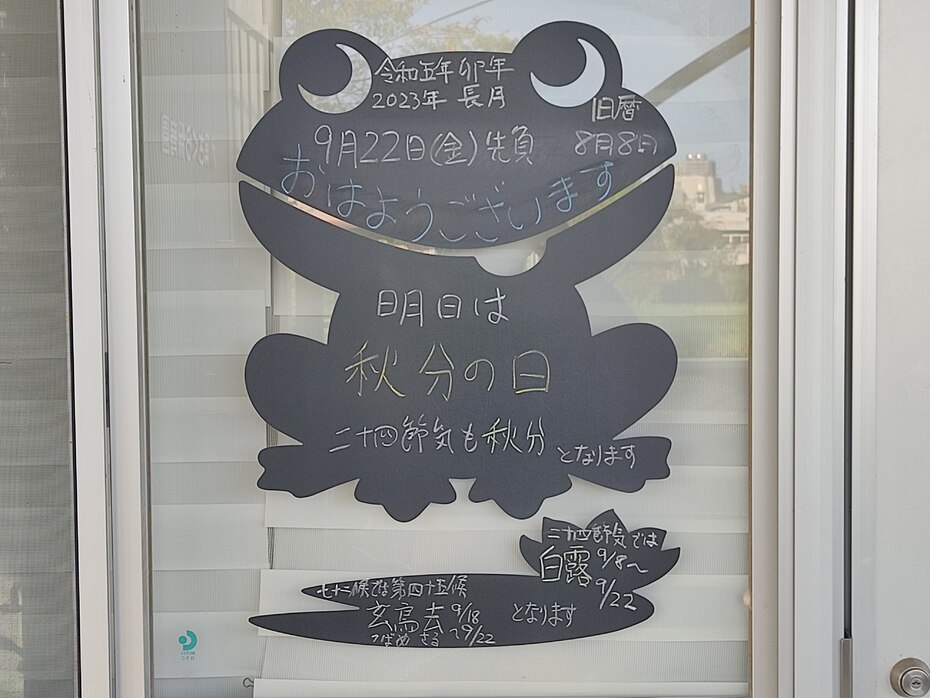 令和五年 卯年
2023年 長月
旧暦
8月8日
9月22日(金)先負
おはようございます
明日は
秋分の日
二十四節気も秋分
となります
二十四節気では
白露 9/8〜
9/22
七十二候では第四十五候
玄鳥去 9/18
つばめ さる 〜9/22
となります